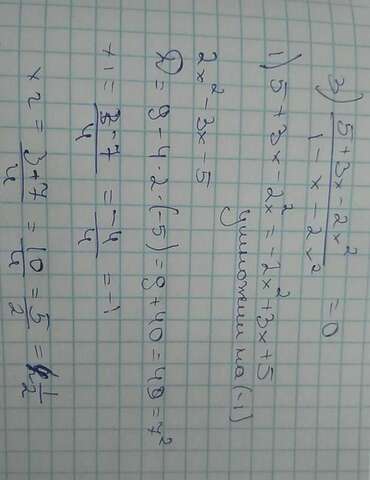 3) (5+3x-2x²)/(1-x-2x²) = 0
1) 5+3x-2x² = -2x²+3x+5
умножим на (-1)
2x²-3x-5
D = 9-4·2·(-5) = 9+40 = 49 = 7²
x1 = (3-7)/4 = -4/4 = -1
x2 = (3+7)/4 = 10/4 = 5/2 = 1/2